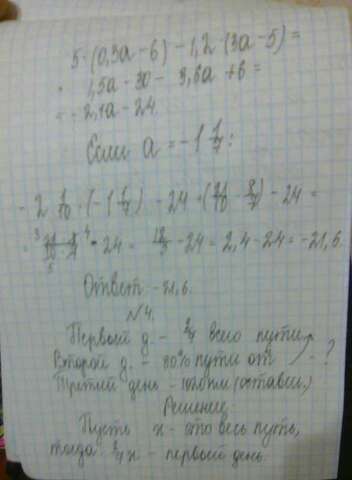 5·(0,3a-6)-1,2·(3a-5)=
= 1,5a-30-3,6a+6=
= -2,1a-24.
Если a = -1 1/7:
-2 1/10·(-1 1/7)-24=(21/10·8/7)-24=
24=12/5-24=2,4-24=-21,6.
Ответ: -21,6.
№4.
Первый д. - 2/7 всего пути
Второй д. - 80% пути от ?
Третий день - (оставш.)
Решение
Пусть x - это весь путь,
тогда 2/7x - первый день.